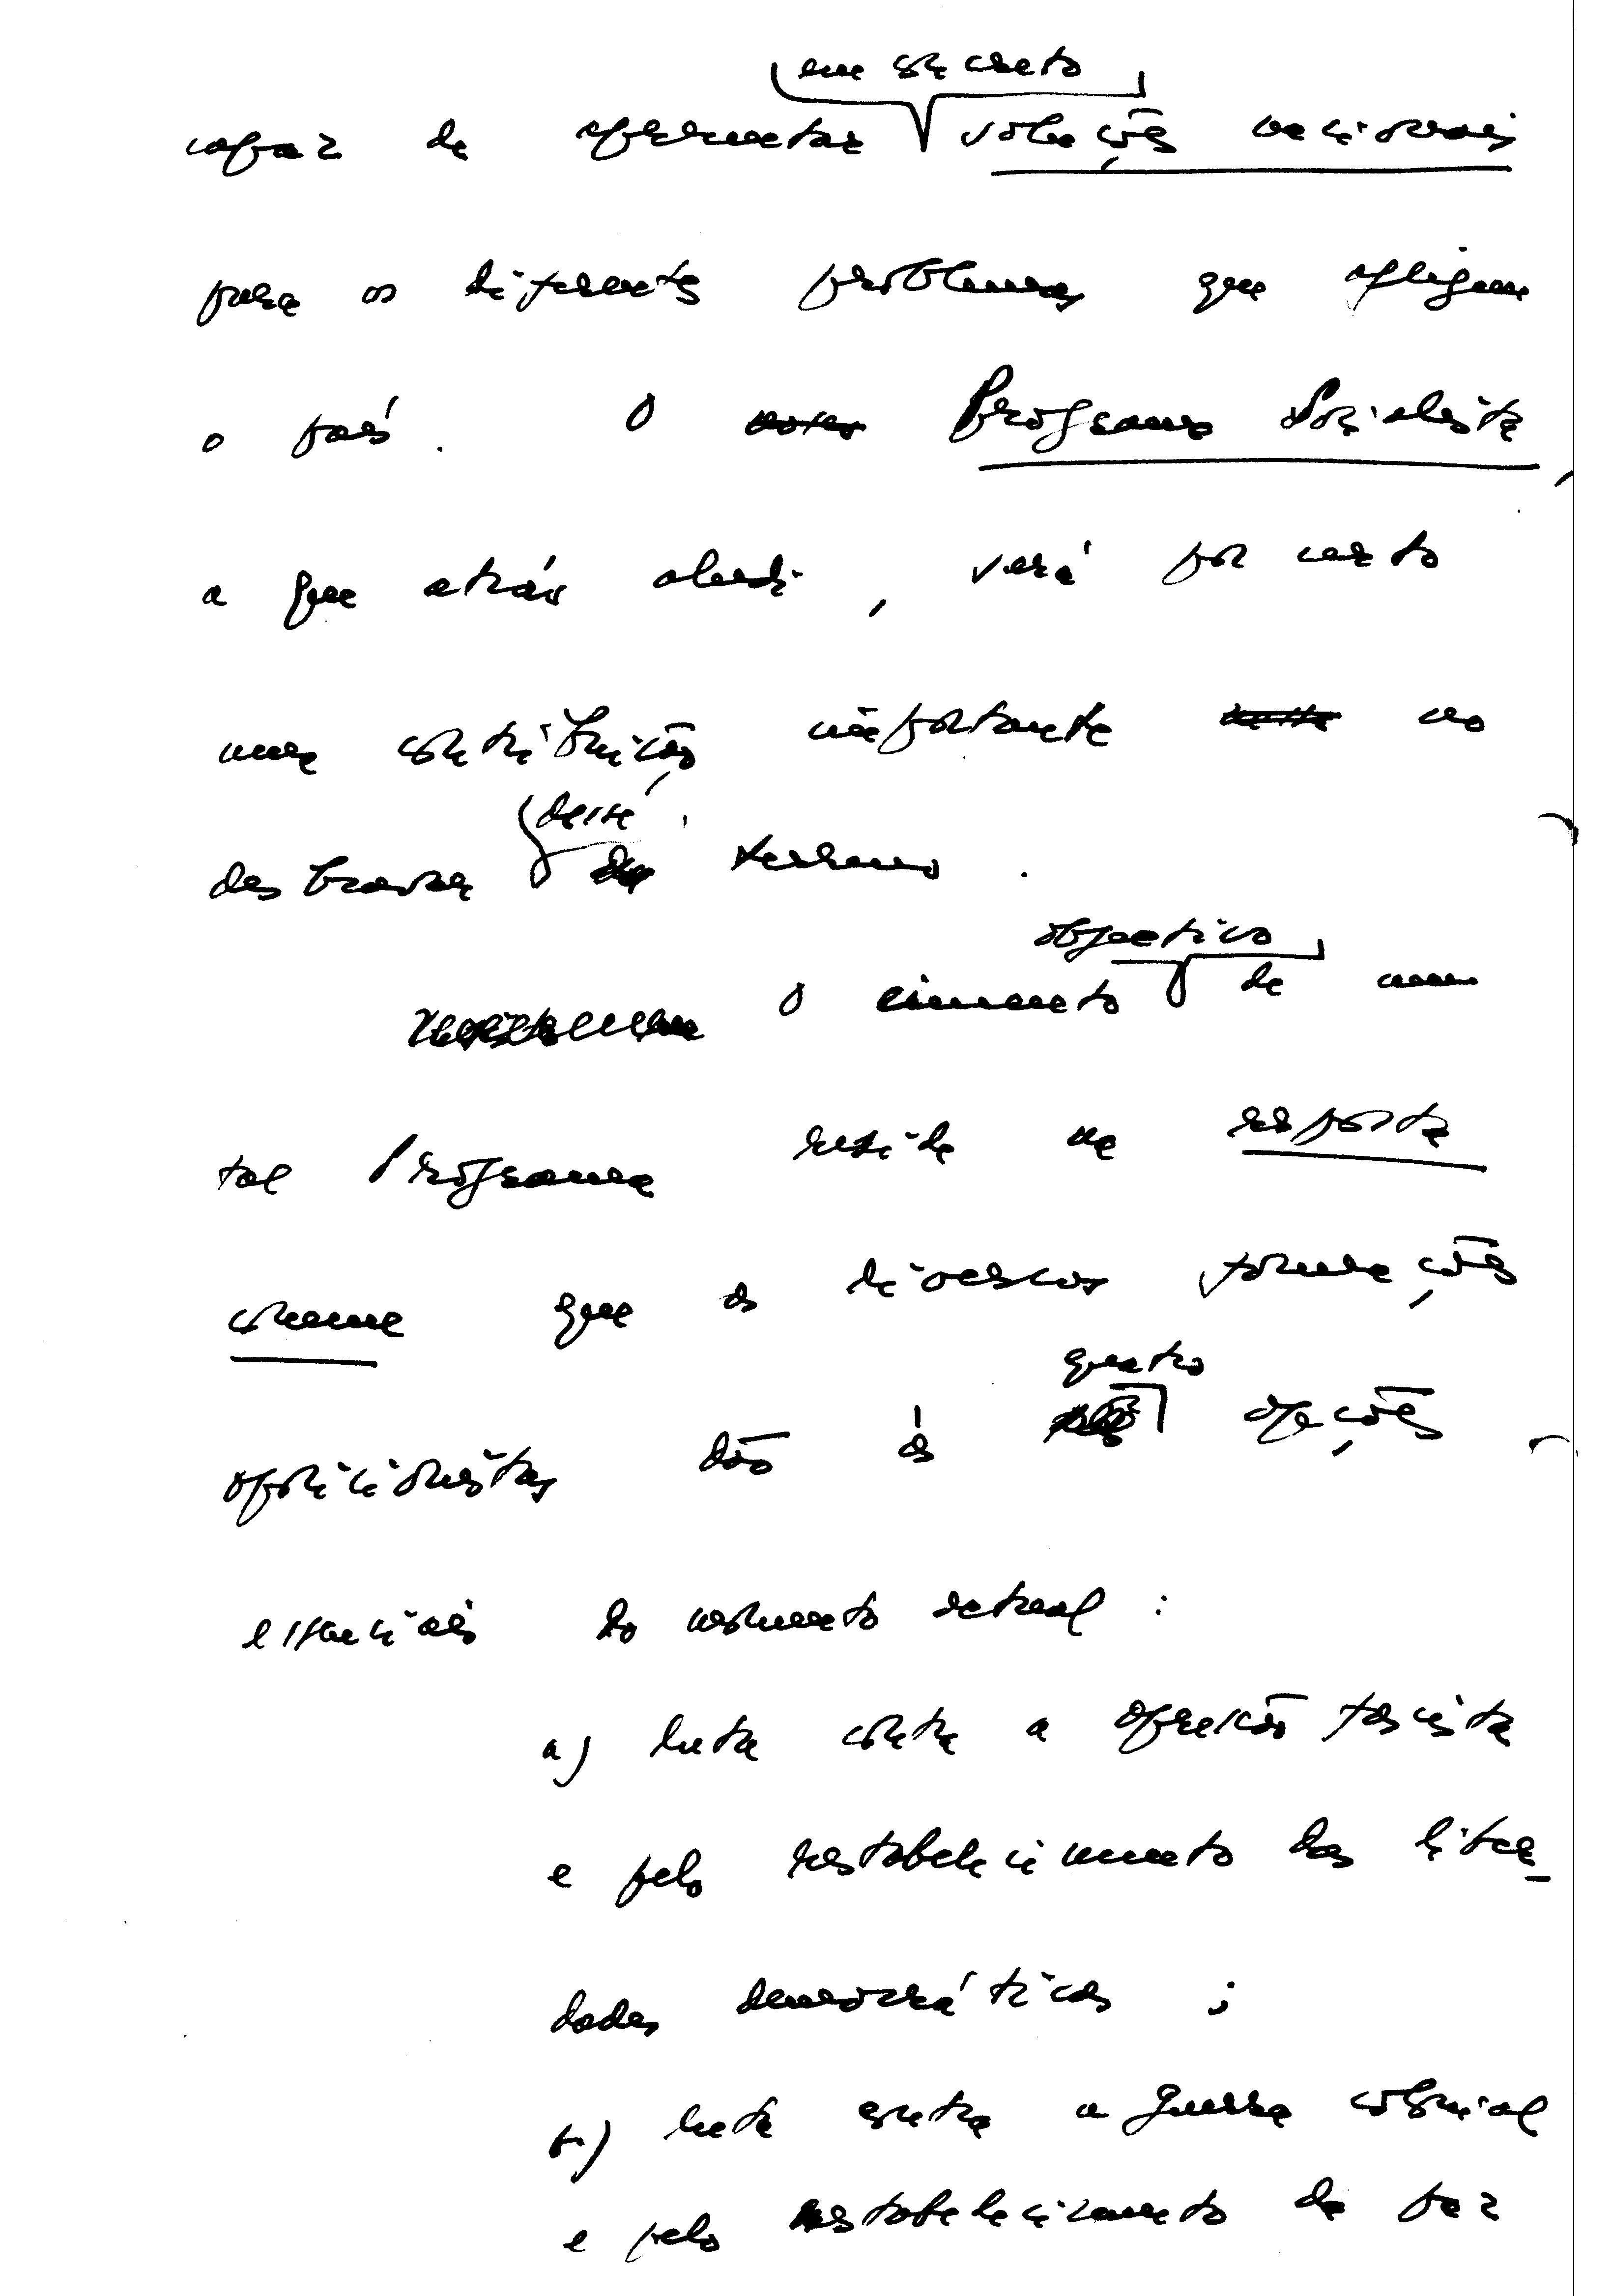 em concreto
capaz de apresentar soluções nacionais
para os diferentes problemas que afligem
o país. O nosso Programa Socialista,
a que atrás aludi, será por certo
uma contribuição importante neste no
desbravar
desse
de terreno.
objectivo
O cimento de um
tal Programa reside na resposta
comum que as diversas formações
quatro
oposicionistas dão às opções
essenciais do momento actual:
a) luta contra a opressão fascista
e pelo restabelecimento das liber-
dades democráticas;
b) luta contra a guerra colonial
e pelo restabelecimento da paz